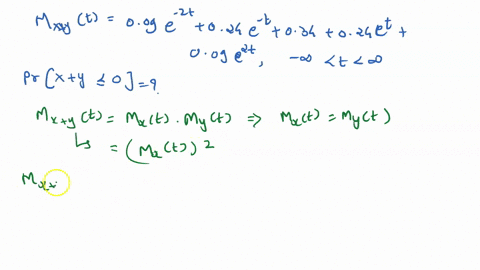 Mx+y (t) = 0.09 e^-2t + 0.24 e^-t + 0.34 + 0.24 e^t +
0.09 e^2t, -∞ < t < ∞
Pr [x+y ≤ 0] = ?
Mx+y (t) = Mx(t) . My(t) ⇒ Mx(t) = My(t)
↳ = (Mx(t))^2
Mx+